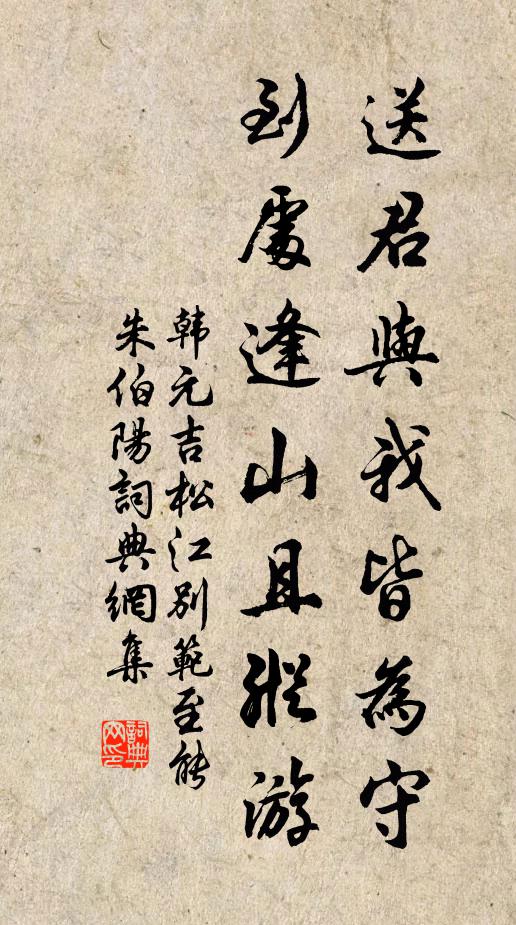 送君與我皆為守
到處逢山且縱游
韩元吉松江别範至能
朱伯陽詞典網集
詞典网印